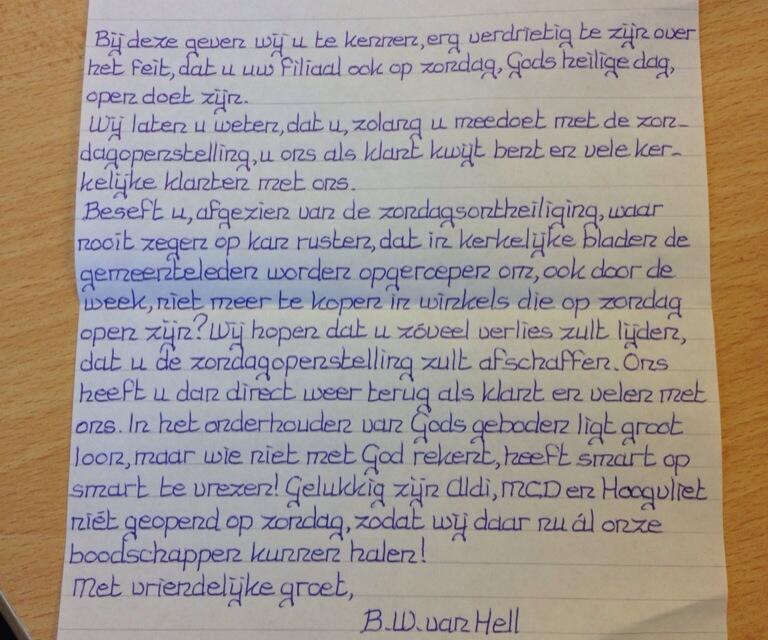 Bij deze geven wij u te kennen, erg verdrietig te zijn over
het feit, dat u uw filiaal ook op zondag, Gods heilige dag,
open doet zijn.
Wij laten u weten, dat u, zolang u meedoet met de zon-
dagopenstelling, u ons als klant kwijt bent en vele ker-
kelijke klanten met ons.
Beseft u, afgezien van de zondagsontheiliging, waar
nooit zegen op kan rusten, dat in kerkelijke bladen de
gemeenteleden worden opgeroepen om, ook door de
week, niet meer te kopen in winkels die op zondag
open zijn? Wij hopen dat u zóveel verlies zult lijden,
dat u de zondagopenstelling zult afschaffen. Ons
heeft u dan direct weer terug als klant en velen met
ons. In het onderhouden van Gods geboden ligt groot
loon, maar wie niet met God rekent, heeft smart op
smart te vrezen! Gelukkig zijn Aldi, MCD en Hoogvliet
niét geopend op zondag, zodat wij daar nu ál onze
boodschappen kunnen halen!
Met vriendelijke groet,
B.W. van Hell